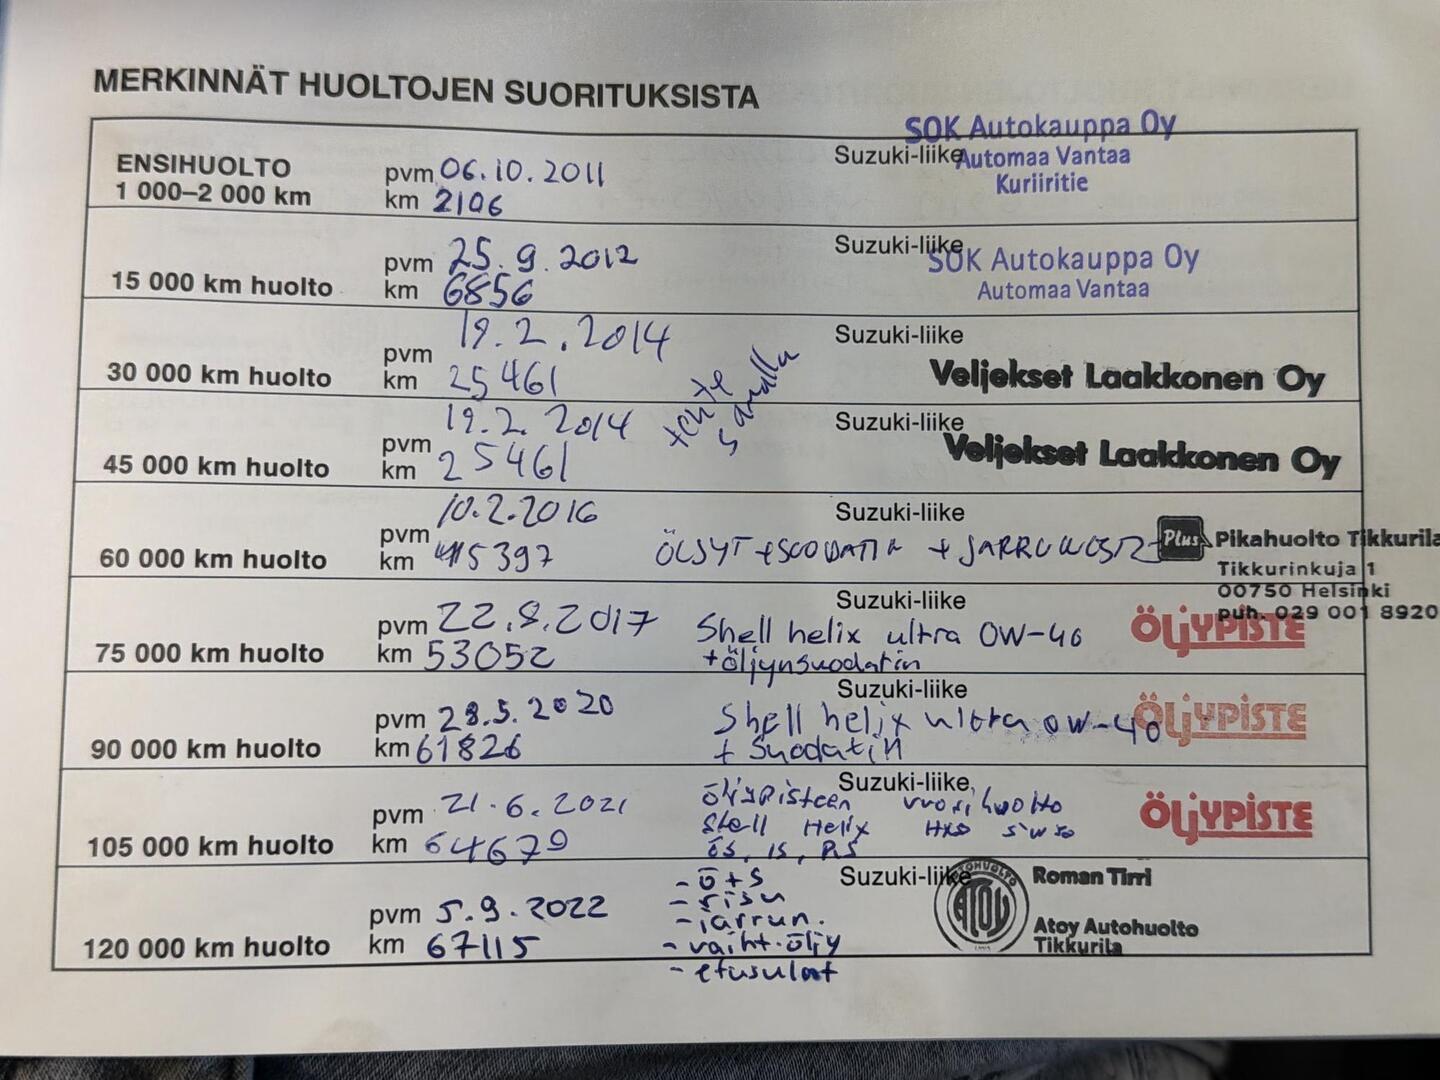 MERKINNÄT HUOLTOJEN SUORITUKSISTA
SOK Autokauppa Oy
ENSIHUOLTO pvm 06.10.2011 Suzuki-liike Automaa Vantaa
1 000–2 000 km km 2106 Kuriiritie
pvm 25.9.2012 Suzuki-liike SOK Autokauppa Oy
15 000 km huolto km 6856 Automaa Vantaa
pvm 19.2.2014 Suzuki-liike
30 000 km huolto km 25461 Veljekset Laakkonen Oy
tehty samalla
pvm 19.2.2014 Suzuki-liike
45 000 km huolto km 25461 Veljekset Laakkonen Oy
pvm 10.2.2016 Suzuki-liike
60 000 km huolto km 45397 ÖLJYT + SUODATIN + JARRUNESTE Plus Pikahuolto Tikkurila
Tikkurinkuja 1
00750 Helsinki
puh. 029 001 8920
pvm 22.8.2017 Suzuki-liike
75 000 km huolto km 53052 Shell helix ultra 0W-40 ÖLJYPISTE
+öljynsuodatin
pvm 28.5.2020 Suzuki-liike
90 000 km huolto km 61826 Shell helix ultra 0W-40 ÖLJYPISTE
+ Suodatin
pvm 21.6.2021 Suzuki-liike
105 000 km huolto km 64679 Öljypisteen vuosihuolto ÖLJYPISTE
Shell Helix HX8 5W30
ÖS, IS, RS
pvm 5.9.2022 - Ö+S Suzuki-liike Roman Tirri
120 000 km huolto km 67115 - sisu AUTOHUOLTO ATOY Atoy Autohuolto
- jarrun. Tikkurila
- vaiht.öljy
- etusulat